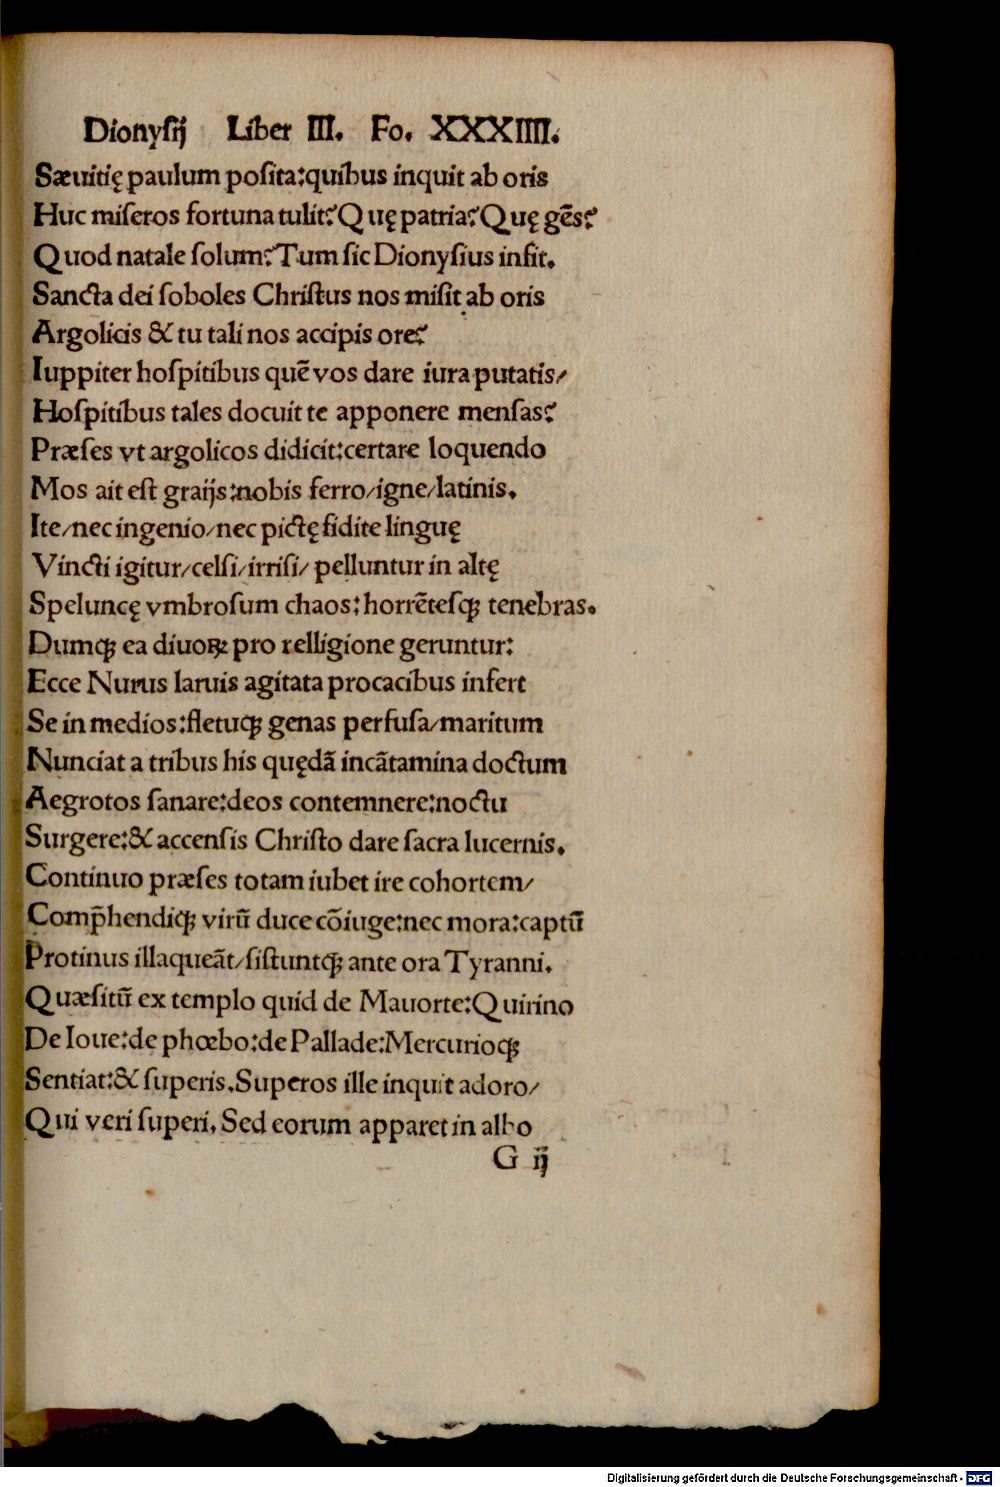 Dionyſij Liber III. Fo. XXXIIII.
Sæuitię paulum poſita:quibus inquit ab oris
Huc miſeros fortuna tulit? Quę patria? Quę gẽs?
Quod natale ſolum? Tum ſic Dionyſius inſit.
Sancta dei ſoboles Chriſtus nos miſit ab oris
Argolicis & tu tali nos accipis ore?
Iuppiter hoſpitibus quẽ vos dare iura putatis/
Hoſpitibus tales docuit te apponere menſas?
Præſes vt argolicos didicit:certare loquendo
Mos ait eſt graijs:nobis ferro/igne/latinis.
Ite/nec ingenio/nec pictę fidite linguę
Vincti igitur/celſi/irriſi/ pelluntur in altę
Speluncę vmbroſum chaos:horrẽteſqꝫ tenebras.
Dumqꝫ ea diuoꝝ pro relligione geruntur:
Ecce Nurus laruis agitata procacibus infert
Se in medios:fletuqꝫ genas perfuſa/maritum
Nunciat a tribus his quędã incãtamina doctum
Aegrotos ſanare:deos contemnere:noctu
Surgere:& accenſis Chriſto dare ſacra lucernis.
Continuo præſes totam iubet ire cohortem/
Comp̃hendiqꝫ virũ duce cõiuge:nec mora:captũ
Protinus illaqueãt/ſiſtuntqꝫ ante ora Tyranni.
Quæſitũ ex templo quid de Mauorte:Quirino
De Ioue:de phœbo:de Pallade:Mercurioqꝫ
Sentiat:& ſuperis. Superos ille inquit adoro/
Qui veri ſuperi. Sed eorum apparet in albo
G ij
Digitalisierung gefördert durch die Deutsche Forschungsgemeinschaft - DFG